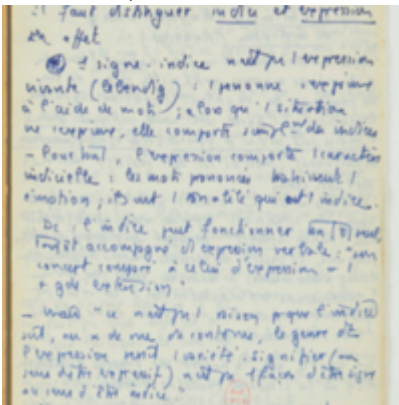 il faut distinguer indice et expression
en effet
1 signe-indice n'est pas 1 expression
vivante (lebendig) : 1 personne s'exprime
à l'aide de mots ; alors qu' 1 situation
ne s'exprime, elle comporte des indices
- Pourtant, l'expression comporte 1 caractère
indicielle : les mots prononcés trahissent 1
émotion, ils ont 1 tonalité qui est 1 indice.
l'indice peut fonctionner seul,
accompagné d'expression verbale : "son
concept comparé à celui d'expression - 1
+ gde extension"
- mais "ce n'est pas 1 raison pour que l'indice
soit, au n de vue du contenu, le genre dt
l'expression serait 1 variété. Signifier (au
sens d'être expressif) n'est pas 1 façon d'être signe
au sens d'être indice."